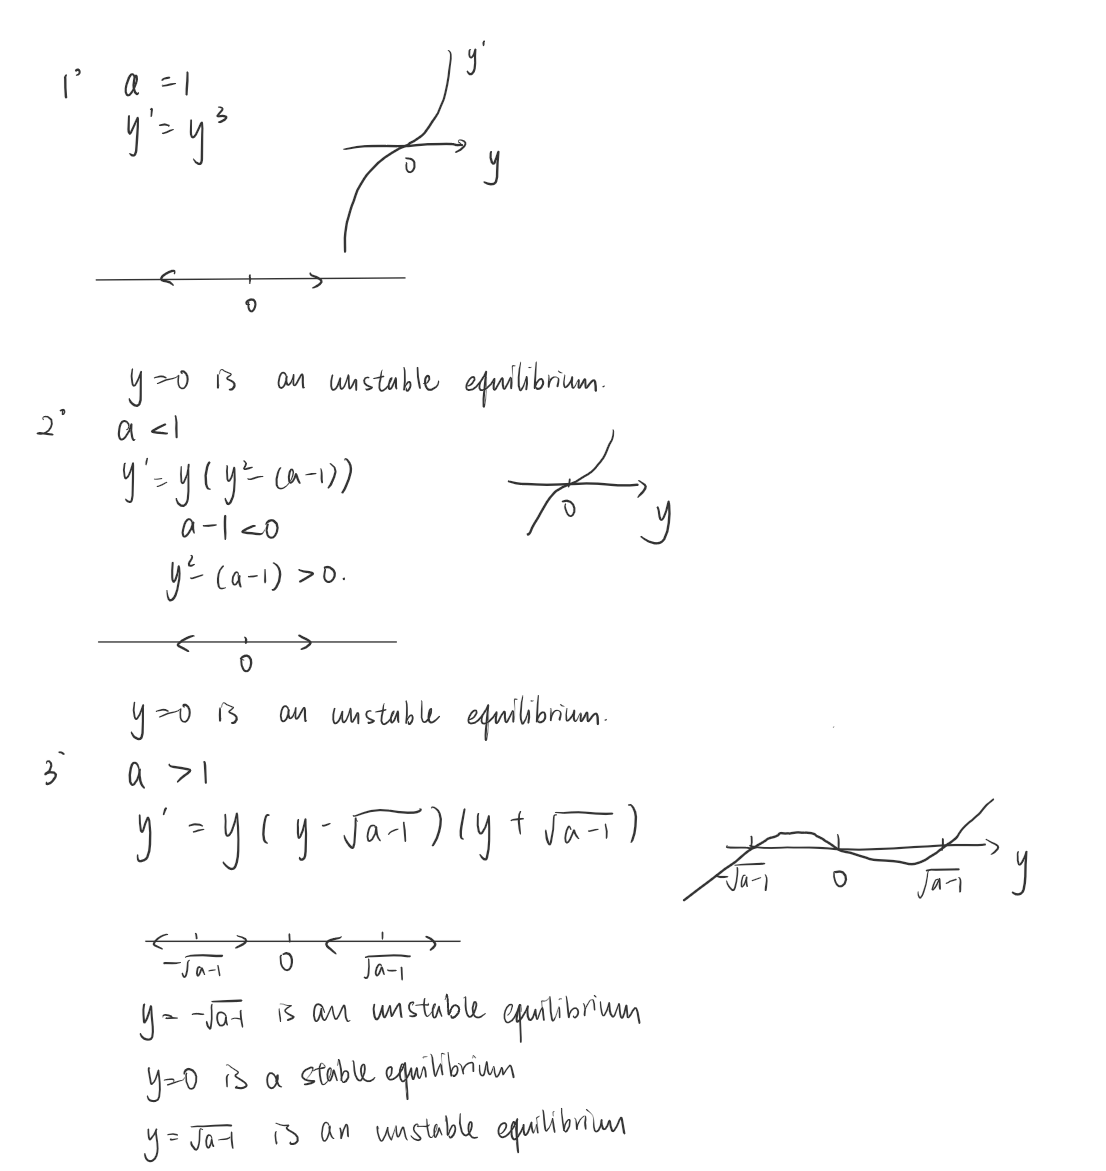 1° a = 1
y' = y³
y'
0
y
0
y=0 is an unstable equilibrium.
2° a < 1
y' = y ( y² - (a-1))
a-1 < 0
y² - (a-1) > 0.
0
y
0
y=0 is an unstable equilibrium.
3° a > 1
y' = y ( y - √(a-1) ) ( y + √(a-1) )
-√(a-1) 0 √(a-1) y
-√(a-1) 0 √(a-1)
y = -√(a-1) is an unstable equilibrium
y=0 is a stable equilibrium
y = √(a-1) is an unstable equilibrium